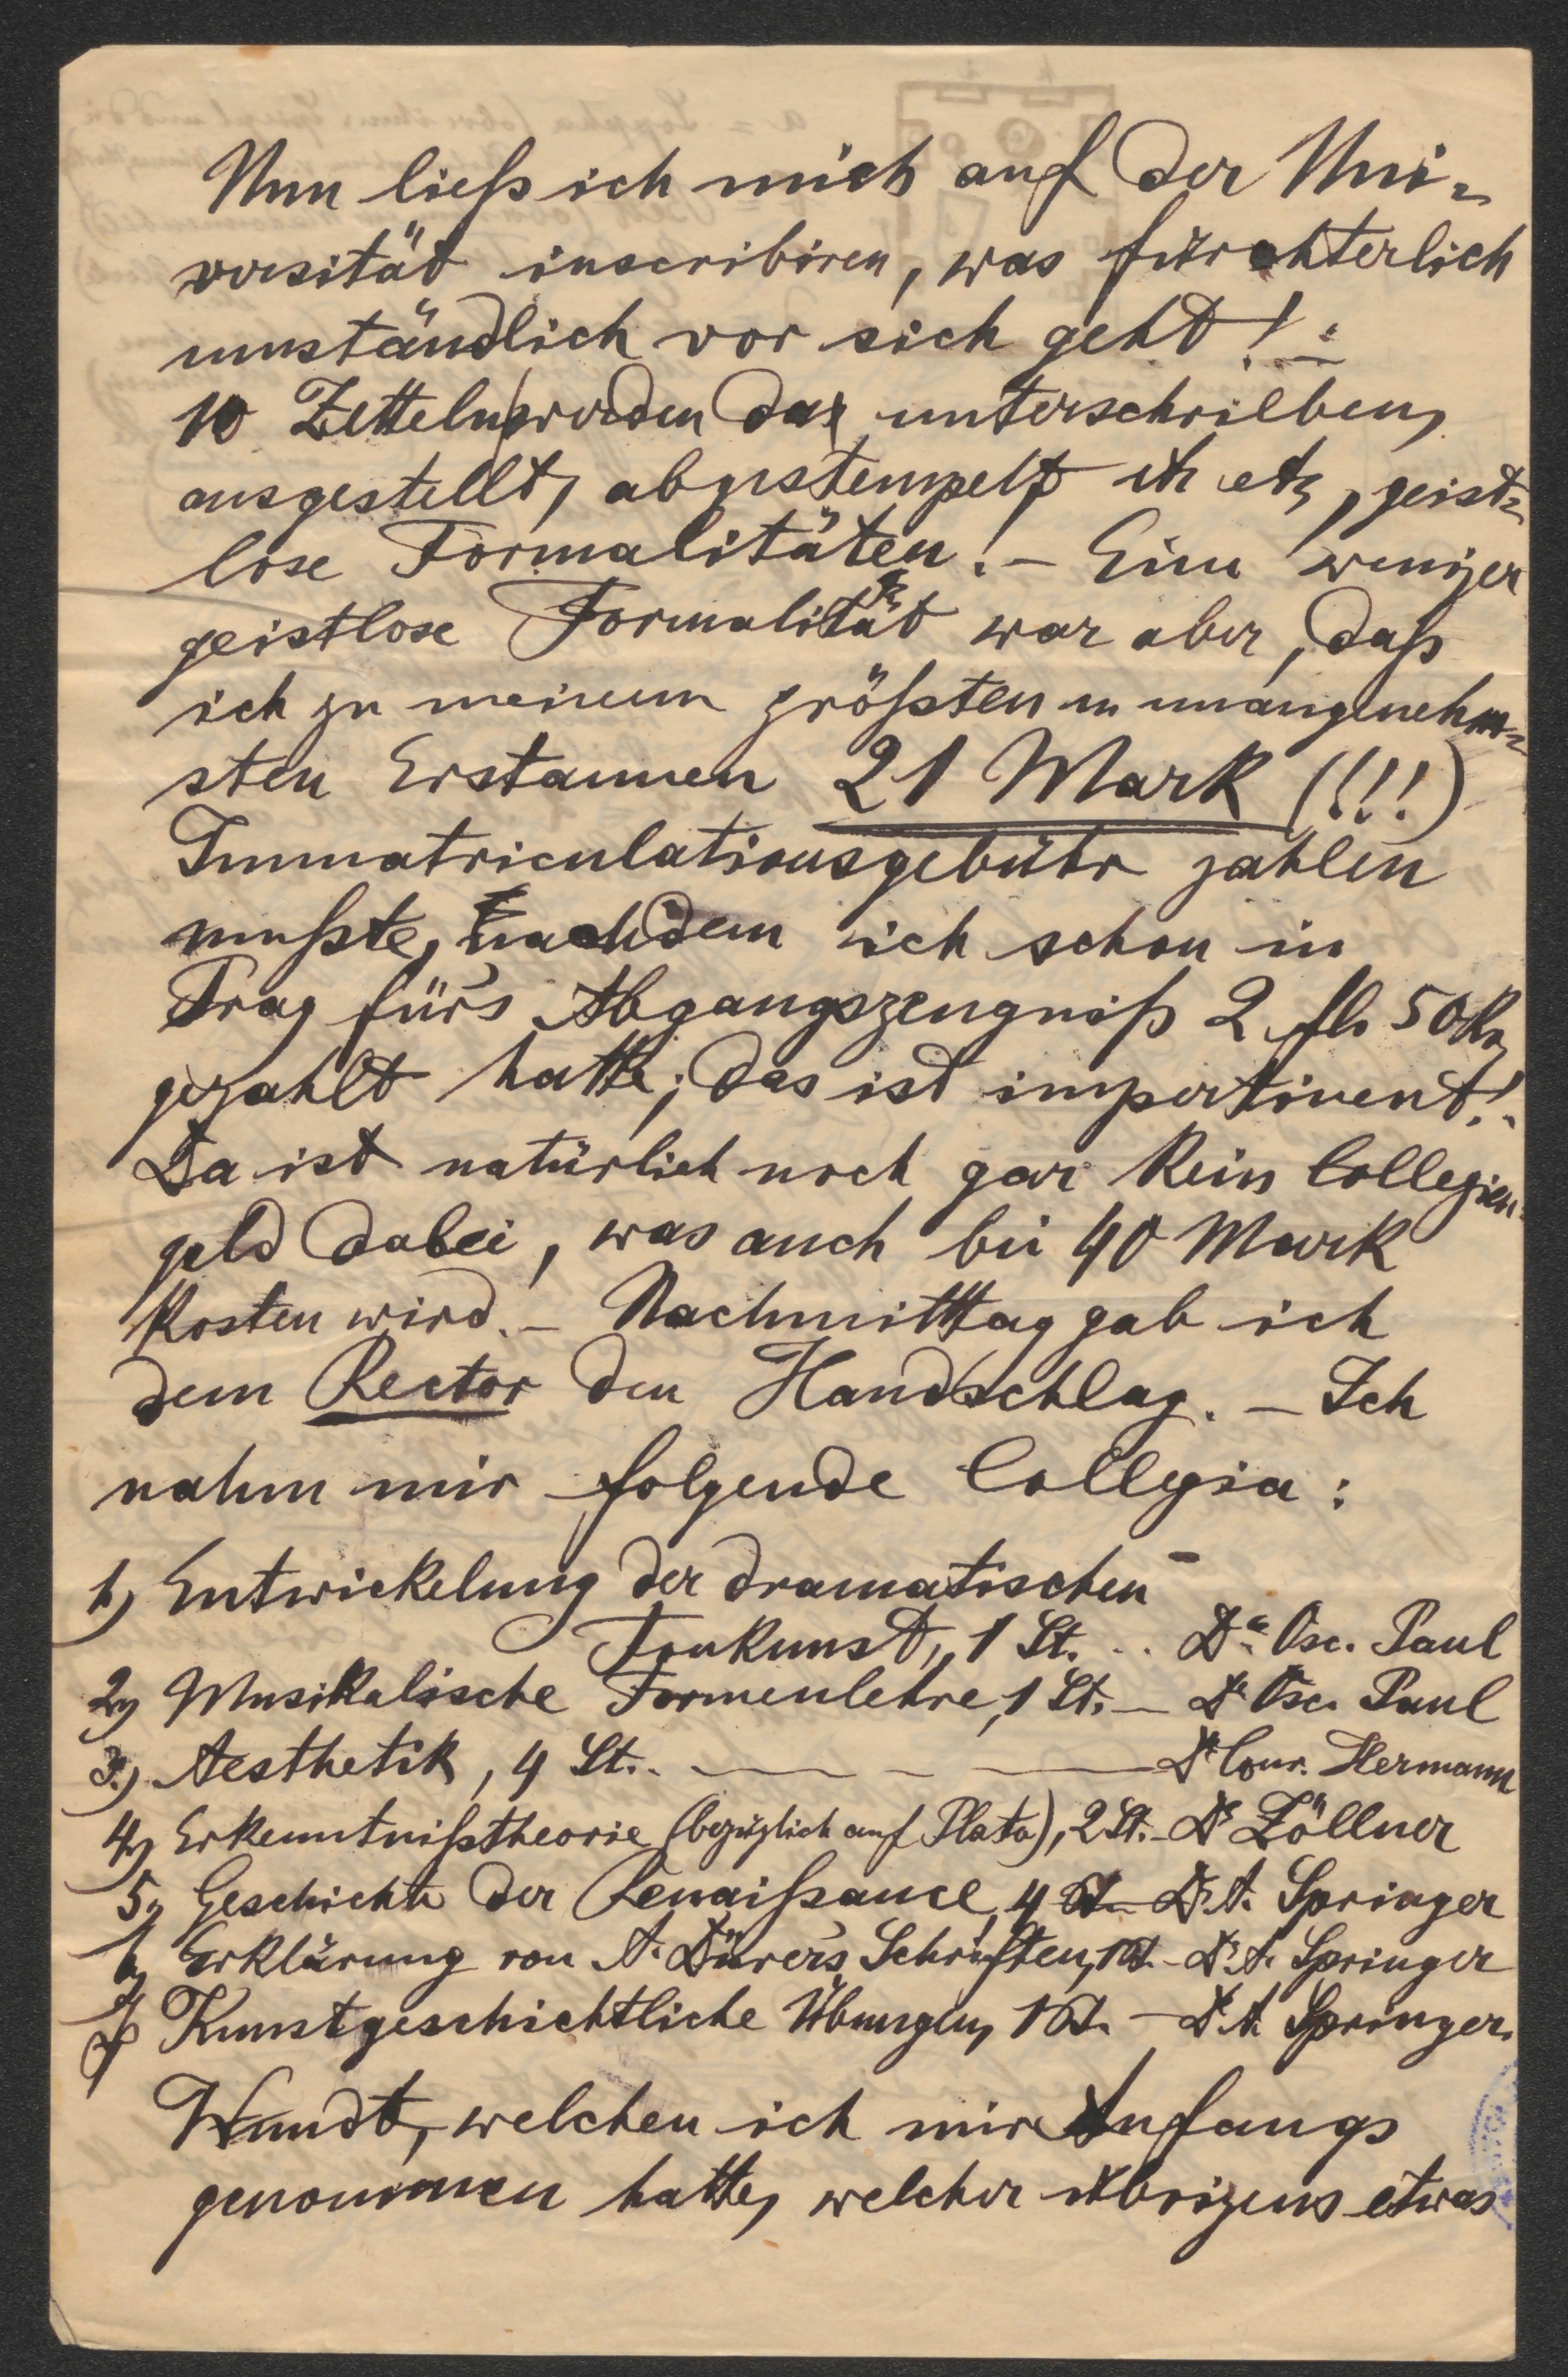 Nun ließ ich mich auf der Uni-
versität inscribiren, was fürchterlich
umständlich vor sich geht! -
10 Zetteln werden da unterschrieben,
ausgestellt, abgestempelt etc etc, geist-
lose Formalitäten! - Eine weniger
geistlose Formalität war aber, daß
ich zu meinem größten u unangenehm-
sten Erstaunen 21 Mark (!!!)
Immatriculationsgebühr zahlen
mußte, nachdem ich schon in
Prag fürs Abgangszeugniß 2 fl. 50 Kr
gezahlt hatte; das ist impertinent! -
Da ist natürlich noch gar kein Collegien-
geld dabei, was auch bei 40 Mark
kosten wird. - Nachmittag gab ich
dem Rector den Handschlag. - Ich
nahm mir folgende Collegia:
1) Entwickelung der dramatischen
Tonkunst, 1 St. .. Dr. Osc. Paul
2) Musikalische Formenlehre, 1 St. - Dr Osc. Paul
3.) Aesthetik, 4 St. - - - Dr Conr. Hermann
4) Erkenntnißtheorie (bezüglich auf Plato), 2 St. - Dr Zöllner
5) Geschichte der Renaißance, 4 St. - Dr A. Springer
6) Erklärung von A. Dürer's Schriften, 1 St. - Dr A. Springer
7) Kunstgeschichtliche Übungen, 1 St. - Dr A. Springer.
Wundt, welchen ich mir Anfangs
genommen hatte, welcher übrigens etwas